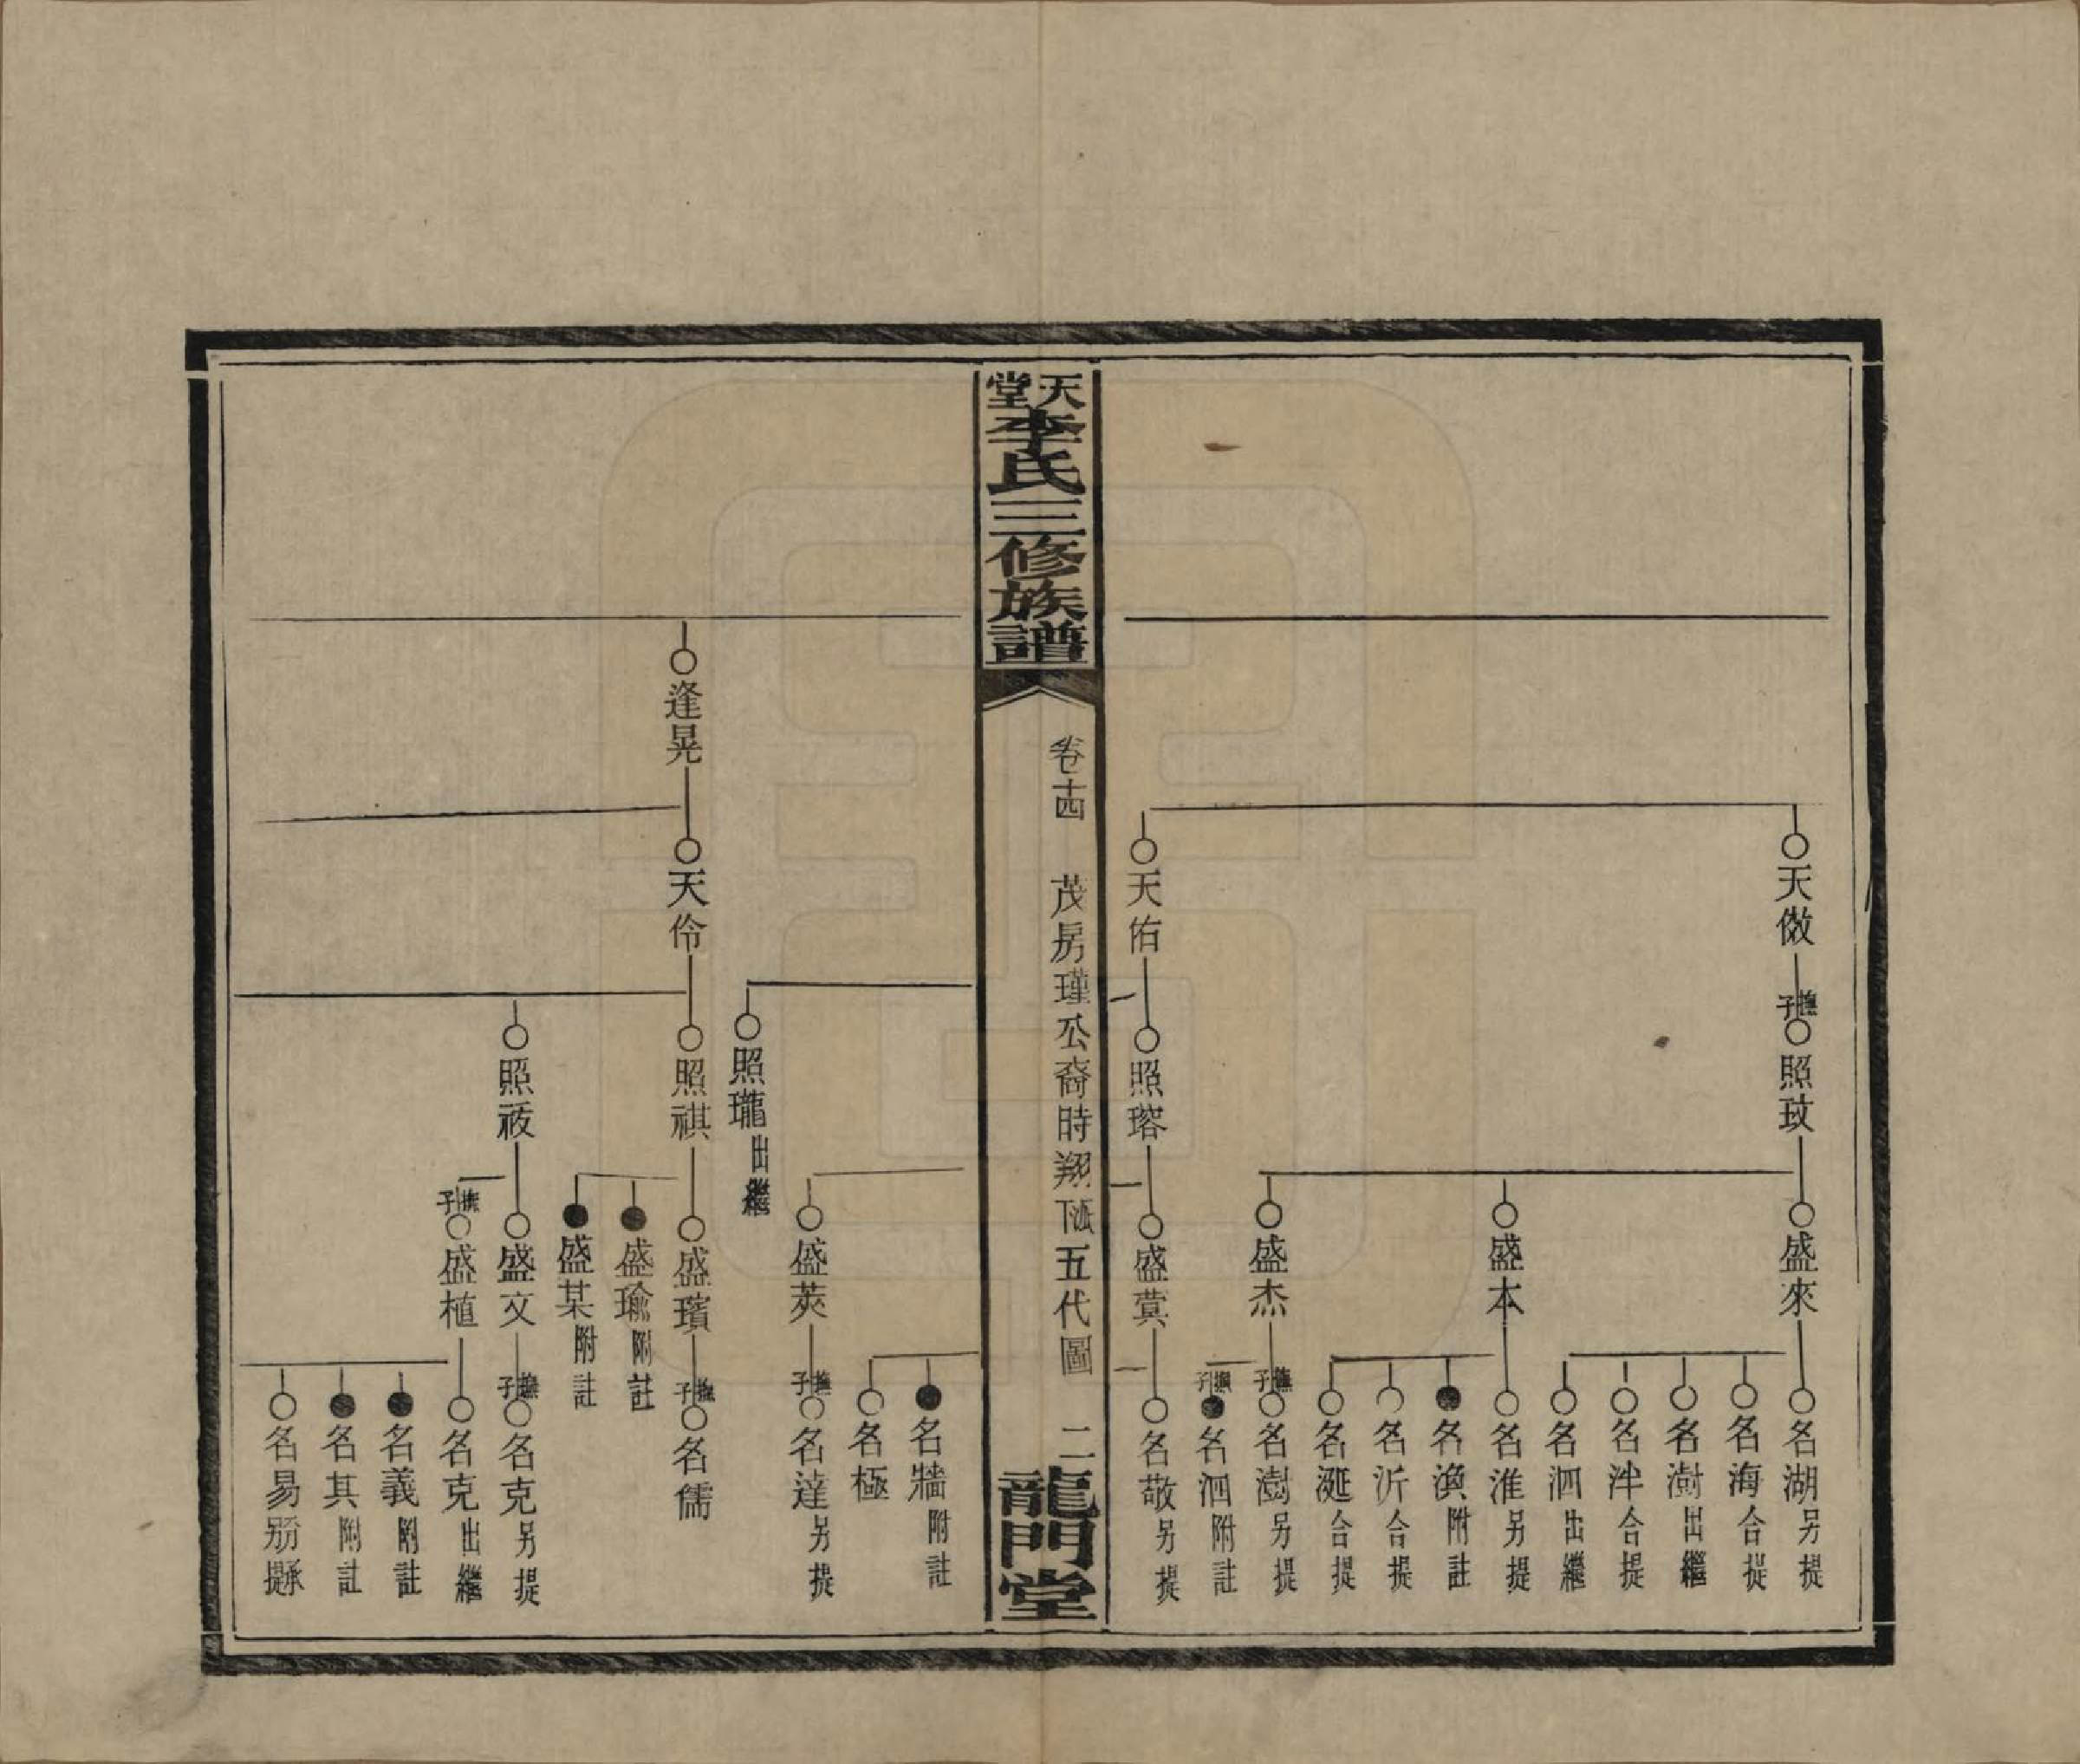 天倣
撫子
照玟
盛來
名湖 另提
名海 合提
名澍 出繼
名泮 合提
名泗 出繼
盛本
名淮 另提
名渙 附註
名沂 合提
名涎 合提
盛杰
撫子
名澍 另提
撫子
名泗 附註
天佑
照瑢
盛蓂
名敬 另提
天堂李氏三修族譜
卷十四
茂房瑾公裔時翔下派五代圖
二
龍門堂
名牆 附註
名極
盛莢
撫子
名達 另提
照瓏 出繼
逢晃
天伶
照祺
盛璸
撫子
名儒
盛瑜 附註
盛某 附註
照祓
盛文
撫子
名克 另提
撫子
盛植
名克 出繼
名義 附註
名其 附註
名易